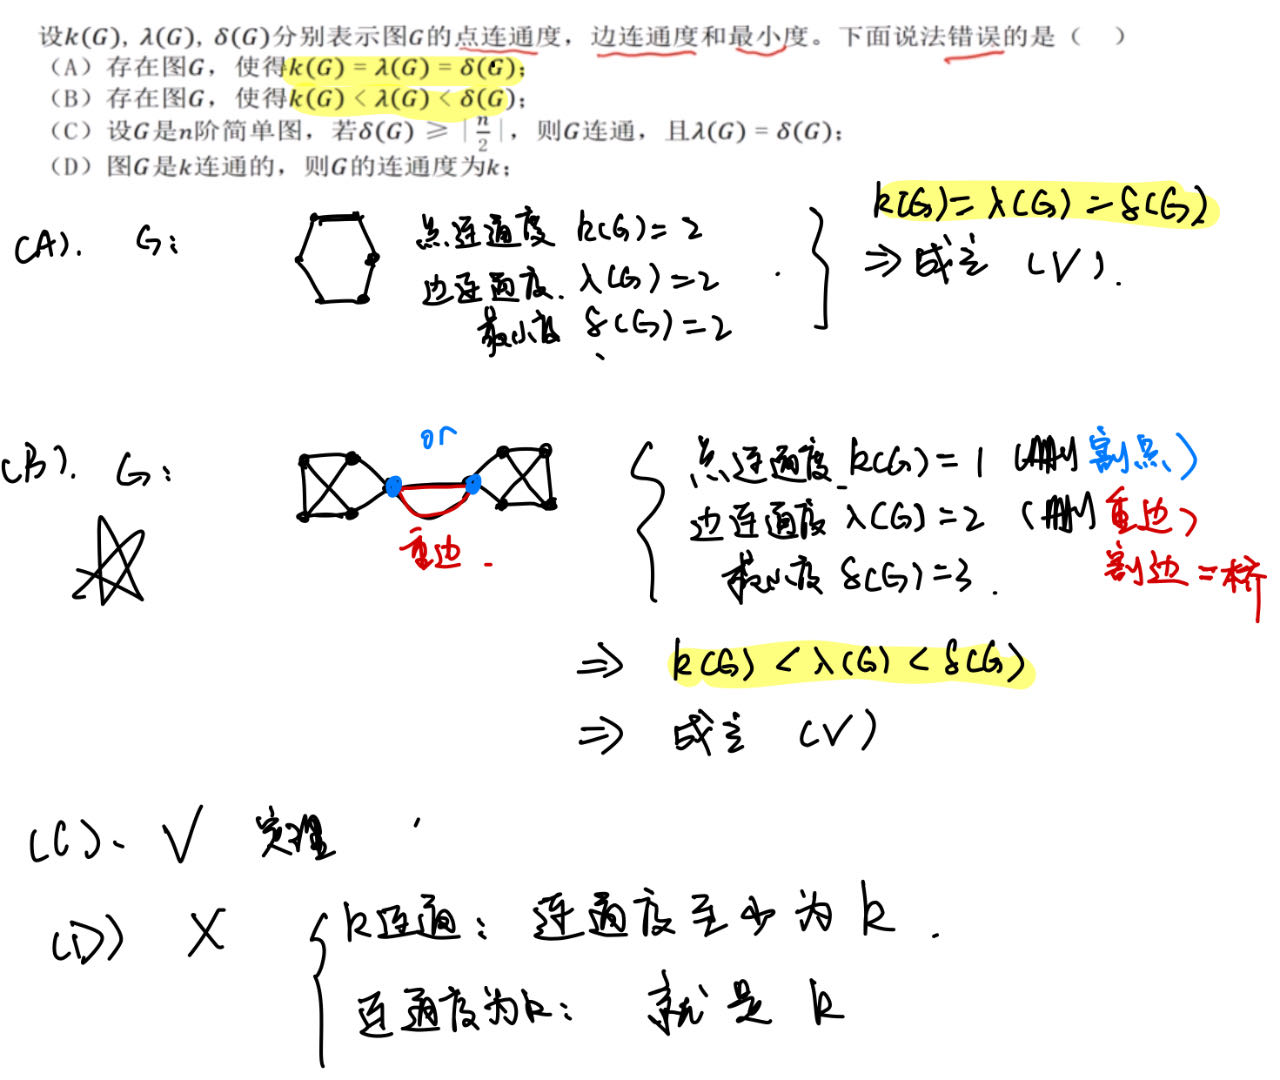 设k(G), λ(G), δ(G)分别表示图G的点连通度，边连通度和最小度。下面说法错误的是（ ）
（A）存在图G，使得k(G) = λ(G) = δ(G);
（B）存在图G，使得k(G) < λ(G) < δ(G);
（C）设G是n阶简单图，若δ(G) ≥ |n/2|，则G连通，且λ(G) = δ(G);
（D）图G是k连通的，则G的连通度为k;
(A). G:
点连通度 k(G)=2
边连通度. λ(G)=2
最小度 δ(G)=2
k(G)=λ(G)=δ(G)
⇒ 成立 (√).
(B). G:
or
重边
点连通度 k(G)=1 割点)
边连通度 λ(G)=2 重边)
最小度 δ(G)=3.
割边=桥
⇒ k(G) < λ(G) < δ(G)
⇒ 成立 (√)
(C). √ 定理
(D) ×
k连通: 连通度至少为 k.
连通度为k: 就是 k